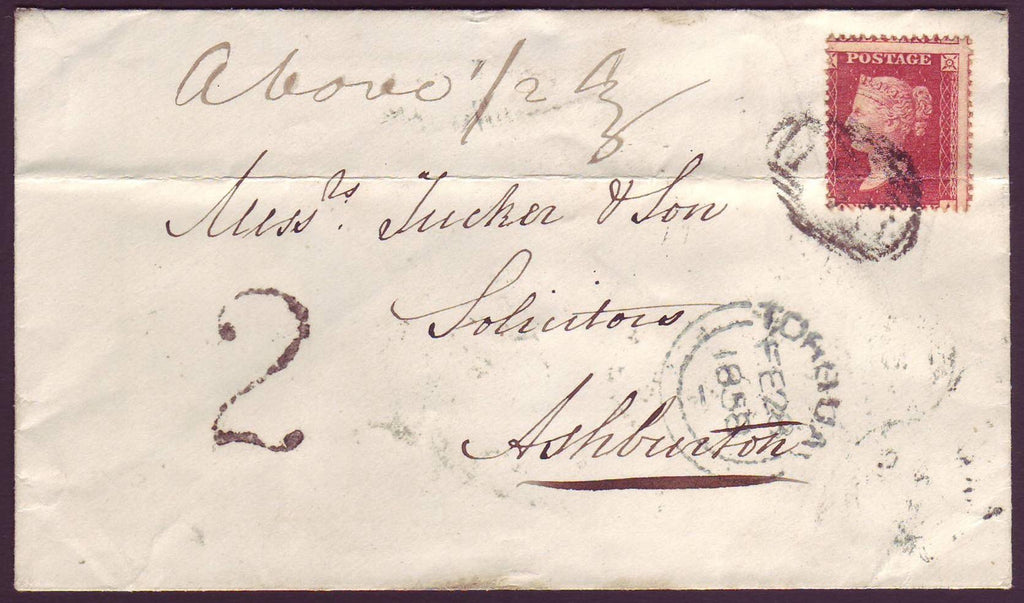 POSTAGE
Above 1/2 oz
Messrs. Tucker & Son
Solicitors
2
Ashburton
TORQUAY
FE 2
1858